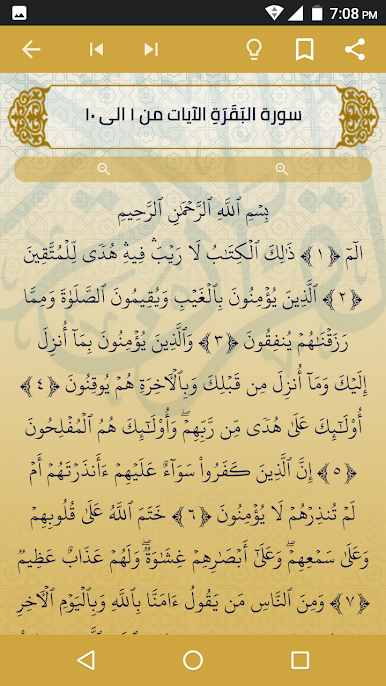 7:08 PM
سورة البَقَرَةِ الآيات من ١ الى ١٠
بِسۡمِ ٱللَّهِ ٱلرَّحۡمَٰنِ ٱلرَّحِيمِ
الٓمٓ ﴿١﴾ ذَٰلِكَ ٱلۡكِتَٰبُ لَا رَيۡبَۛ فِيهِۛ هُدٗى لِّلۡمُتَّقِينَ
﴿٢﴾ ٱلَّذِينَ يُؤۡمِنُونَ بِٱلۡغَيۡبِ وَيُقِيمُونَ ٱلصَّلَوٰةَ وَمِمَّا
رَزَقۡنَٰهُمۡ يُنفِقُونَ ﴿٣﴾ وَٱلَّذِينَ يُؤۡمِنُونَ بِمَآ أُنزِلَ
إِلَيۡكَ وَمَآ أُنزِلَ مِن قَبۡلِكَ وَبِٱلۡأٓخِرَةِ هُمۡ يُوقِنُونَ ﴿٤﴾
أُوْلَٰٓئِكَ عَلَىٰ هُدٗى مِّن رَّبِّهِمۡۖ وَأُوْلَٰٓئِكَ هُمُ ٱلۡمُفۡلِحُونَ
﴿٥﴾ إِنَّ ٱلَّذِينَ كَفَرُواْ سَوَآءٌ عَلَيۡهِمۡ ءَأَنذَرۡتَهُمۡ أَمۡ
لَمۡ تُنذِرۡهُمۡ لَا يُؤۡمِنُونَ ﴿٦﴾ خَتَمَ ٱللَّهُ عَلَىٰ قُلُوبِهِمۡ
وَعَلَىٰ سَمۡعِهِمۡۖ وَعَلَىٰٓ أَبۡصَٰرِهِمۡ غِشَٰوَةٞۖ وَلَهُمۡ عَذَابٌ عَظِيمٞ
﴿٧﴾ وَمِنَ ٱلنَّاسِ مَن يَقُولُ ءَامَنَّا بِٱللَّهِ وَبِٱلۡيَوۡمِ ٱلۡأٓخِرِ